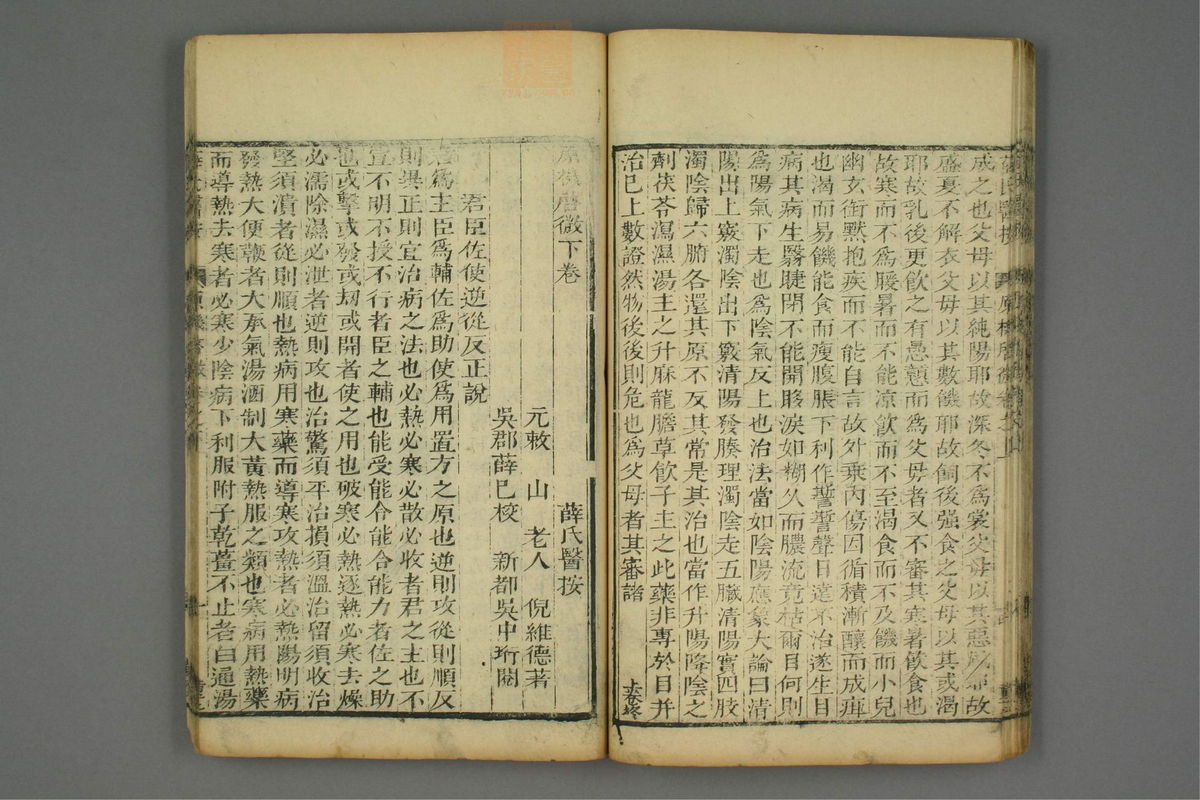 薛氏醫按 原機啟微卷之上
成之也父母以其純陽耶故深冬不為裳父母以其惡風耶故
盛夏不解衣父母以其數饑耶故飼後强食之父母以其或渴
耶故乳後更飲之有愚戇而為父母者又不審其寒暑飲食也
故寒而不為暖暑而不能凉飲而不至渴食而不及饑而小兒
幽玄衘默抱疾而不能自言故外乗内傷因循積漸釀而成疳
也渴而易饑能食而瘦腹脹下利作𧬊𧬊聲日遠不治遂生目
病其病生翳睫閉不能開眵淚如糊久而膿流竟枯爾目何則
為陽氣下走也為陰氣反上也治法當如陰陽應象大論曰清
陽出上竅濁陰出下竅清陽發腠理濁陰走五臟清陽實四肢
濁陰歸六腑各還其原不反其常是其治也當作升陽降陰之
劑茯苓瀉濕湯主之升麻龍膽草飲子主之此藥非專於目并
治已上數證然物後後則危也為父母者其審諸
上卷終
原機啟微下卷 薛氏醫按
元敕 山 老人 倪維德著
吳郡薛已校 新都吳中珩閱
君臣佐使逆從反正說
君為主臣為輔佐為助使為用置方之原也逆則攻從則順反
則異正則宜治病之法也必熱必寒必散必收者君之主也不
宣不明不授不行者臣之輔也能受能令能合能力者佐之助
也或擊或發或刼或開者使之用也破寒必熱逐熱必寒去燥
必濡除濕必泄者逆則攻也治驚須平治損須溫治留須收治
堅須潰者從則順也熱病用寒藥而導寒攻熱者必熱陽明病
發熱大便鞕者大承氣湯酒制大黃熱服之類也寒病用熱藥
而導熱去寒者必寒少陰病下利服附子乾薑不止者白通湯